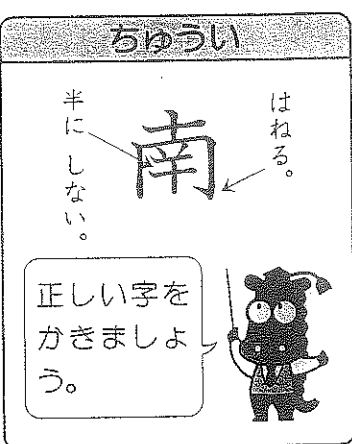 ちゅうい
はねる。
南
半に しない。
正しい字を
かきましょ
う。